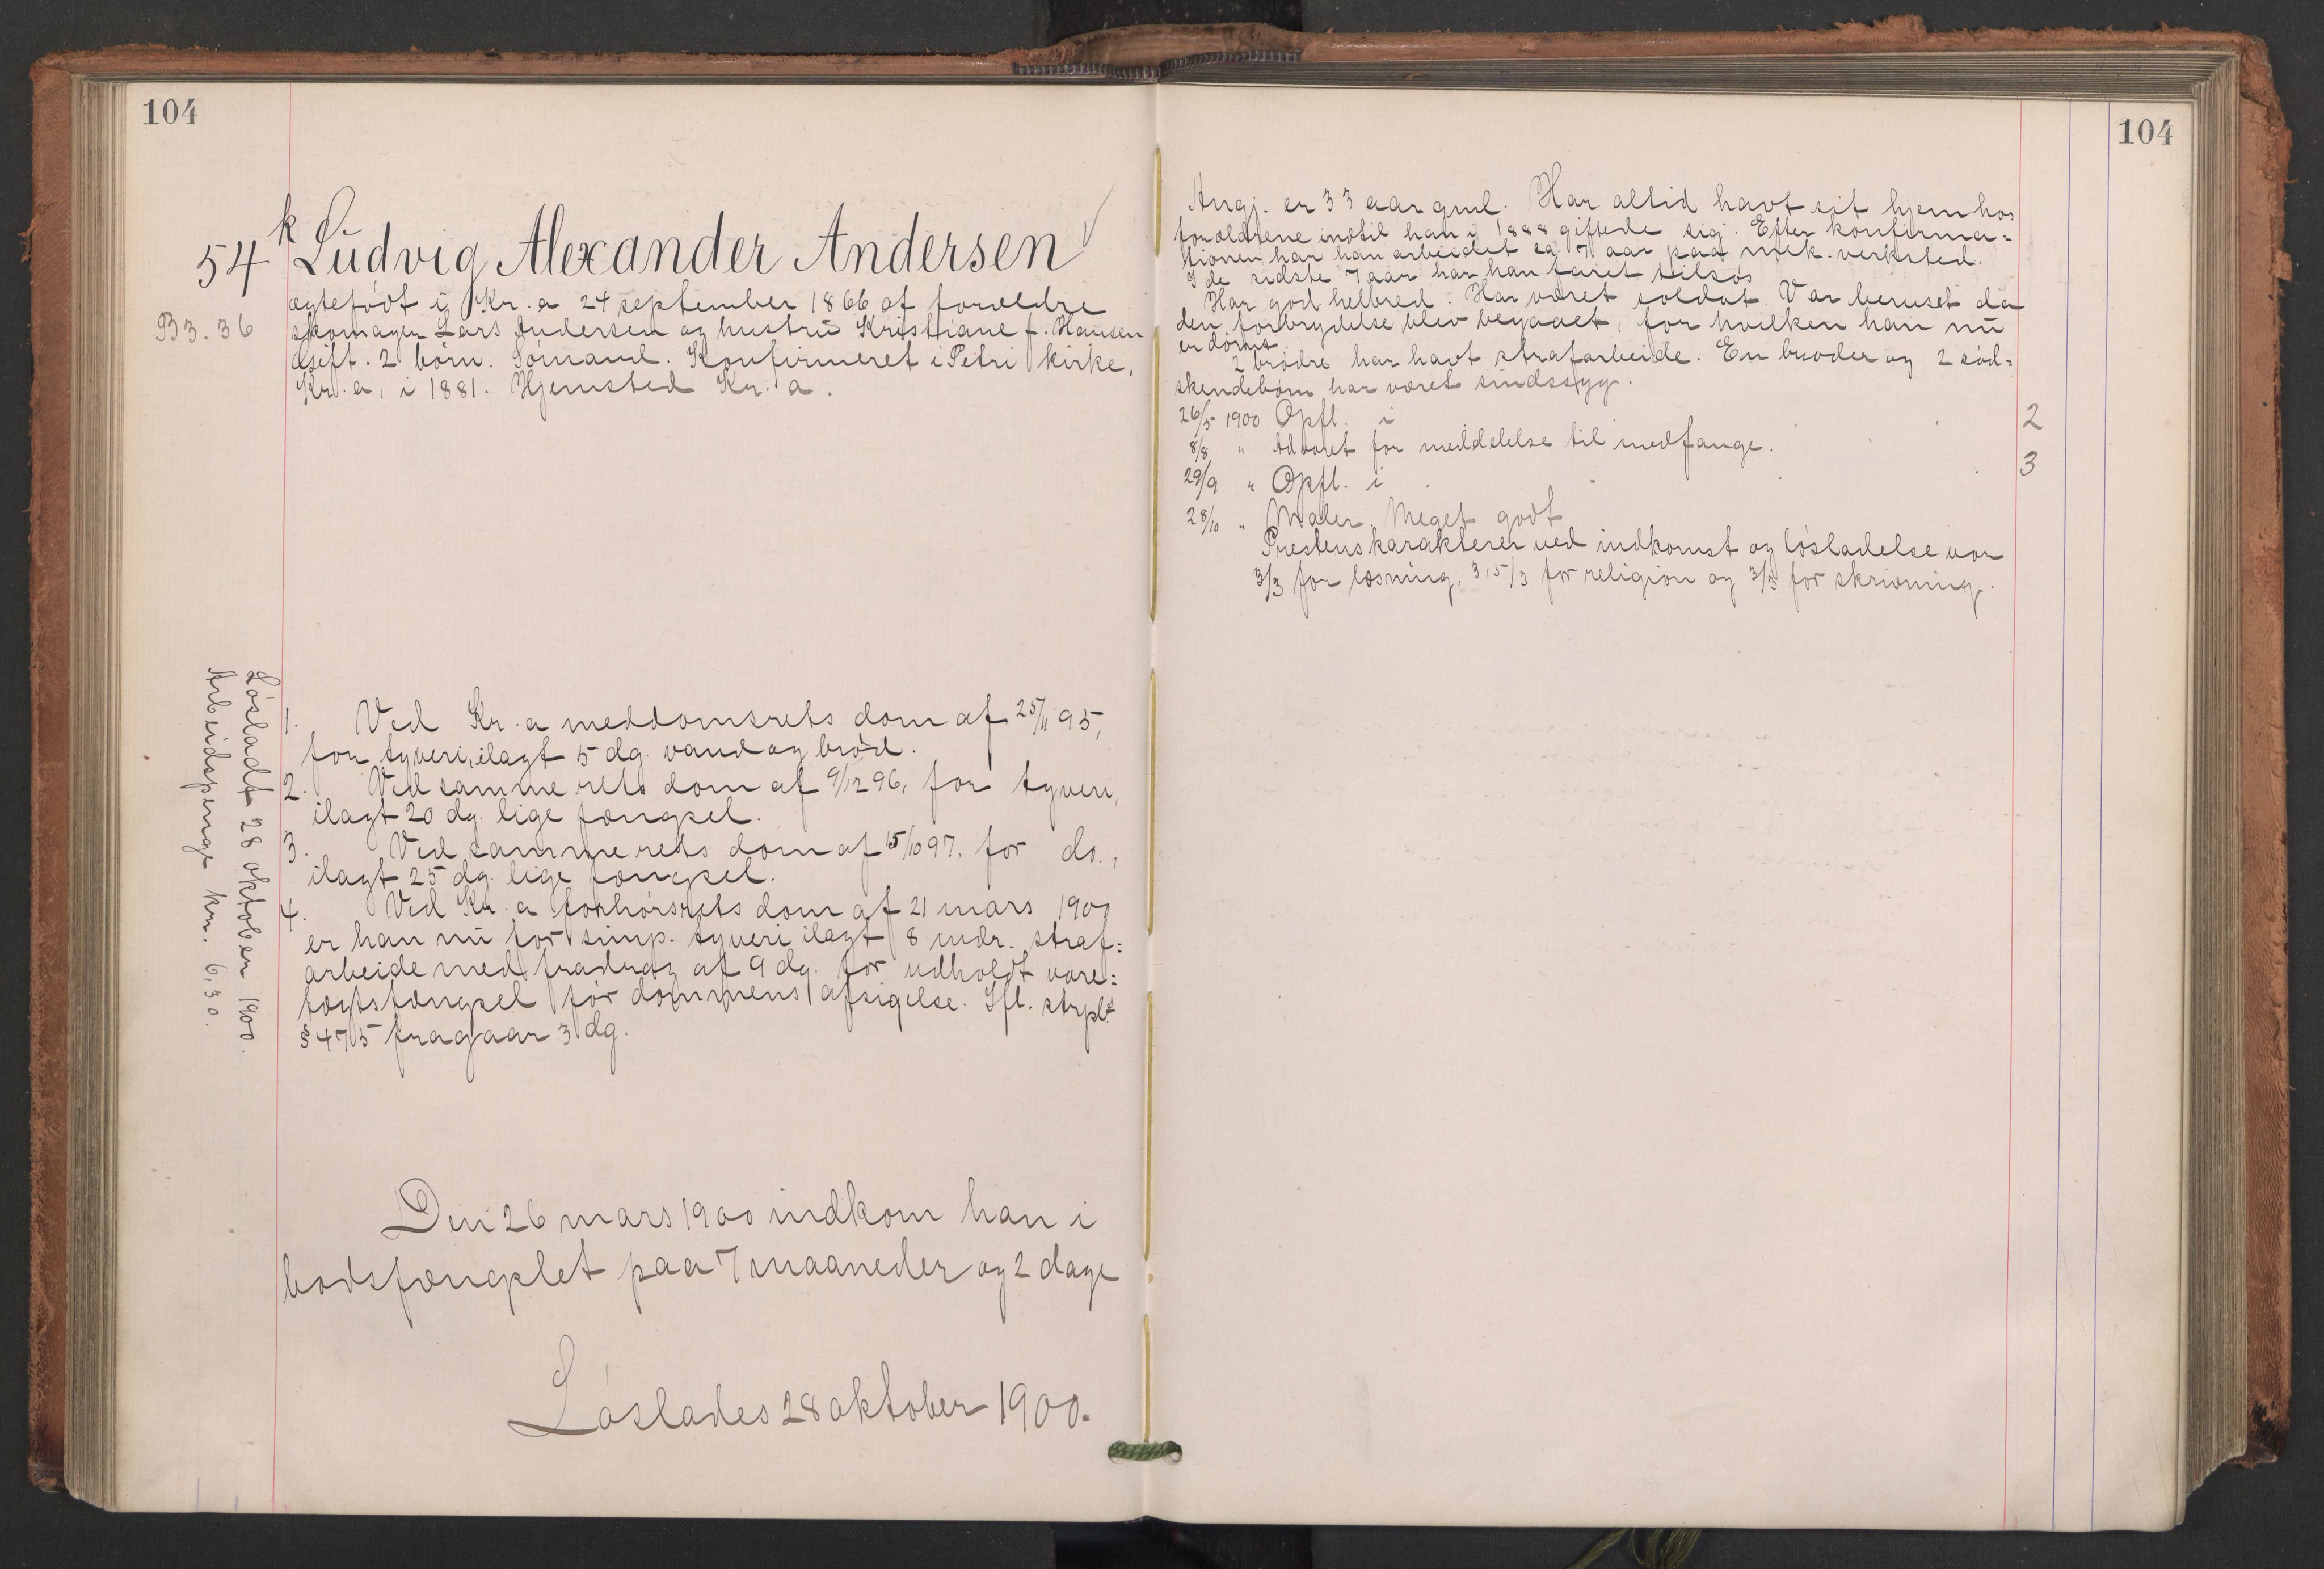 104
54 k Ludvig Alexander Andersen
B3.36
ægtefødt i Kr.a 24 september 1866 af forældre
skomager Lars Andersen og hustru Kristiane f. Hansen
Gift. 2 børn. Sømand. Konfirmeret i Petri kirke,
Kr.a, i 1881. Hjemsted Kr.a.
1. Ved Kr.a meddomsrets dom af 25/11 95,
for tyveri, ilagt 5 dg. vand og brød.
2. Ved samme rets dom af 9/12 96, for tyveri,
ilagt 20 dg. lige fængsel.
3. Ved samme rets dom af 15/10 97. for do.,
ilagt 25 dg. lige fængsel.
4. Ved Kr.a forhørsrets dom af 21 mars 1900
er han nu for simp. tyveri ilagt 8 mdr. straf=
arbeide med fradrag af 9 dg. for udholdt vare=
tægtsfængsel før dommens afsigelse. Ifl. strpl.
§ 475 fragaar 3 dg.
Løsladt 28 oktober 1900.
Arbeidspenge kr. 6,30.
Den 26 mars 1900 indkom han i
bodsfængslet paa 7 maaneder og 2 dage
Løslades 28 oktober 1900.
104
Angj. er 33 aar gml. Har altid havt sit hjem hos
forældrene indtil han i 1888 giftede sig. Efter konfirma=
tionen har han arbeidet ca 7 aar paa mek. verksted.
I de sidste 7 aar har han faret tilsøs
Har god helbred. Har været soldat. Var beruset da
den forbrydelse blev begaaet, for hvilken han nu
er dømt.
2 brødre har havt strafarbeide. En broder og 2 sød=
skendebørn har været sindssyg.
26/5 1900 Opfl. i 2
8/8 " Advaret for meddelelse til medfange.
29/9 " Opfl. i 3
28/10 " Maler. Meget godt
Prestens karakterer ved indkomst og løsladelse var
3/3 for læsning, 3,5/3 for religion og 3/3 for skrivning.